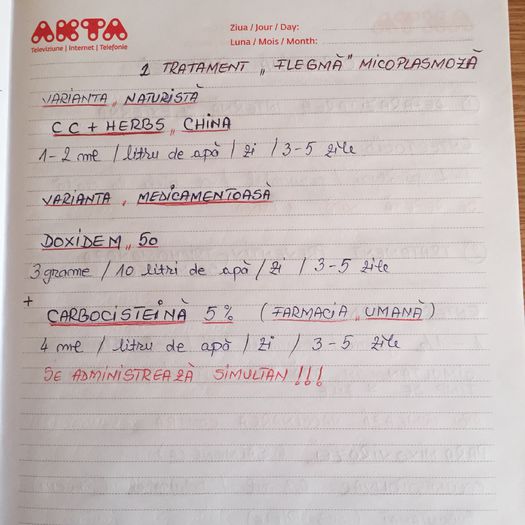 AKTA
Televiziune | Internet | Telefonie
Ziua / Jour / Day:
Luna / Mois / Month:
1 TRATAMENT „FLEGMĂ" MICOPLASMOZĂ
VARIANTA „ NATURISTĂ
CC + HERBS „ CHINA
1-2 ml / litru de apă / zi / 3-5 zile
VARIANTA „ MEDICAMENTOASĂ
DOXIDEM „ 50
3 grame / 10 litri de apă / zi / 3-5 zile
+
CARBOCISTEINĂ 5% ( FARMACIA „ UMANĂ )
4 ml / litru de apă / zi / 3-5 zile
SE ADMINISTREAZĂ SIMULTAN !!!